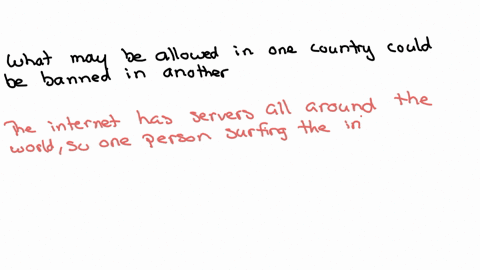 What may be allowed in one country could
be banned in another
The internet has servers all around the
world, so one person surfing the in